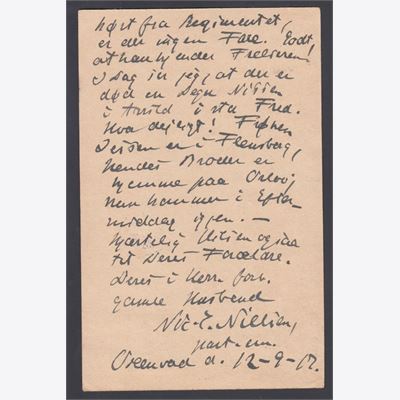 hørt fra Regimentet,
er der ingen Fare. Godt
at han kender Frelseren!
I Dag ser jeg, at der er
død en Degn Nielsen
i Arrild i sta Fred.
Frøken
Jessen er i Flensborg,
hendes Broder er
hjemme paa Orlov;
han kommer i Efter-
middag igen. —
Hjertelig Hilsen ogsaa
til Deres Forældre.
Deres i Herr. forb.
gamle Husbond
Nic. C. Nielsen,
past. em.
d. 12-9-17.